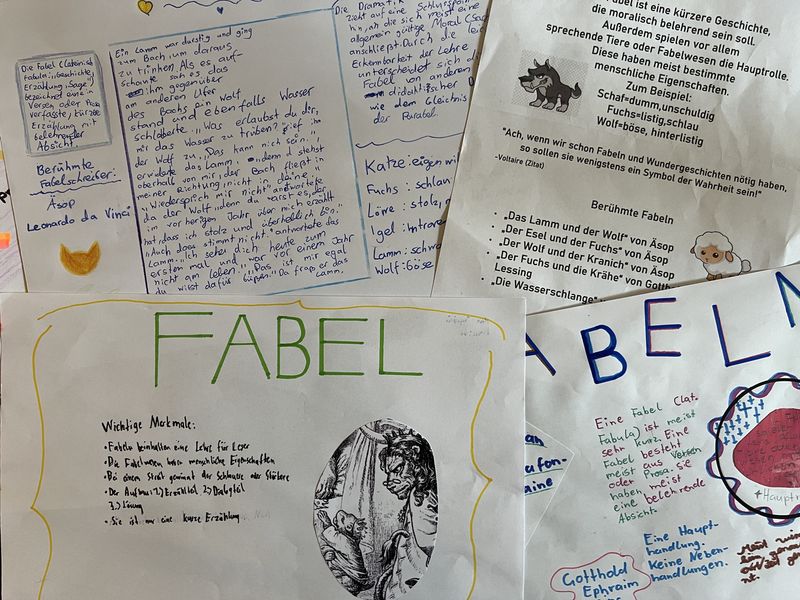 Die Fabel (latein:
Fabula: „Geschichte,
Erzählung, Sage")
bezeichnet eine in
Versen oder Prosa
verfasste, kürzere
Erzählung mit
belehrender
Absicht.
Berühmte
Fabelschreiber:
Äsop
Leonardo da Vinci
Ein Lamm war durstig und ging
zum Bach, um daraus
zu trinken. Als es auf-
schaute sah es, das
ihm gegenüber
am anderen Ufer
des Bachs ein Wolf
stand und ebenfalls Wasser
schlabberte. „Was erlaubst du dir,
mir das Wasser zu trüben? rief ihm
der Wolf zu. „Das kann nicht sein.",
erwiderte das Lamm. „denn du stehst
oberhalb von mir, der Bach fließt in
meiner Richtung, nicht in deine."
„Wiedersprich mir nicht" antwortete
da der Wolf „denn du warst es, der
im vorherigen Jahr über mich erzählt
hat, dass ich stolz und überheblich bin."
„Auch das stimmt nicht." antwortete das
Lamm. „Ich sehe dich heute zum
ersten mal und war vor einem Jahr
nicht am leben." „Das ist mir egal
du wirst dafür büßen." Da fraß er das
Lamm.
Die Dramatik
zieht auf eine Schlusspoin
hin, an die sich meist eine
allgemein gültige Moral (Sac
anschließt. Durch die leic
Erkennbarkeit der Lehre
unterscheidet sich di
Fabel von anderen
didaktischer
wie dem Gleichnis
der Parabel.
Katze: eigenwi
Fuchs: schlau
Löwe: stolz,
Igel: introve
Lamm: schwa
Wolf: Böse
Fabel ist eine kürzere Geschichte,
die moralisch belehrend sein soll.
Außerdem spielen vor allem
sprechende Tiere oder Fabelwesen die Hauptrolle.
Diese haben meist bestimmte
menschliche Eigenschaften.
Zum Beispiel:
Schaf=dumm,unschuldig
Fuchs=listig,schlau
Wolf=böse, hinterlistig
"Ach, wenn wir schon Fabeln und Wundergeschichten nötig haben,
so sollen sie wenigstens ein Symbol der Wahrheit sein!"
-Voltaire (Zitat)
Berühmte Fabeln
• „Das Lamm und der Wolf" von Äsop
• "Der Esel und der Fuchs" von Äsop
• "Der Wolf und der Kranich" von Äsop
• "Der Fuchs und die Krähe" von Gotth
Lessing
• "Die Wasserschlange"
FABEL
Wichtige Merkmale:
• Fabeln beinhalten eine Lehre für Leser
• Die Fabelwesen haben menschliche Eigenschaften
• Bei einem Streit gewinnt der Schlauere oder Stärkere
• Der Aufbau: 1.) Erzählteil 2.) Dialogteil
3.) Lösung
• Sie ist nur eine kurze Erzählung
ABELN
Eine Fabel (lat.
Fabula) ist meist
sehr kurz. Eine
Fabel besteht
meist aus Versen
oder Prosa. Sie
haben meist
eine belehrende
Absicht.
an
afon-
aine
Hauptr
Eine Haupt-
handlung.
Keine Neben-
handlungen.
Gotthold
Ephraim